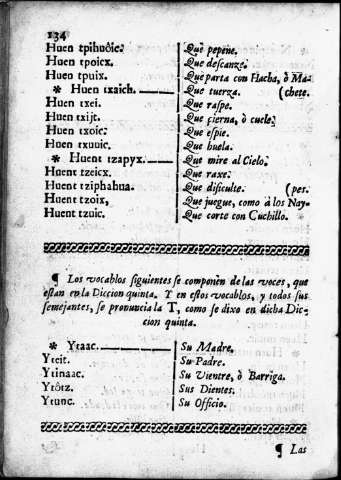 134
Huen tpihuôie. Què pepene.
Huen tpoicx. Què descanze.
Huen tpuix. Què parta con Hacha, ò Ma-
* Huen txaich. Que tuerza. (chete.
Huen txei. Què raspe.
Huen txijt. Que cierna, ò cuele.
Huen txoie. Què espie.
Huen txuuic. Què huela.
* Huent tzapyx. Què mire al Cielo.
Huent tzeicx. Què raxe.
Huent tziphahua. Que dificulte. (pes.
Huent tzoix, Què juegue, como à los Nay-
Huent tzuic. Que corte con Cuchillo.
¶ Los vocablos siguientes se componen de las voces, que
estan en la Diccion quinta. Y en estos vocablos, y todos sus
semejantes, se pronuncia la T, como se dixo en dicha Dic-
cion quinta.
* Ytaac. Su Madre.
Yteit. Su Padre.
Ytinaac. Su Vientre, ò Barriga.
Ytôtz. Sus Dientes.
Ytunc. Su Officio.
¶ Las